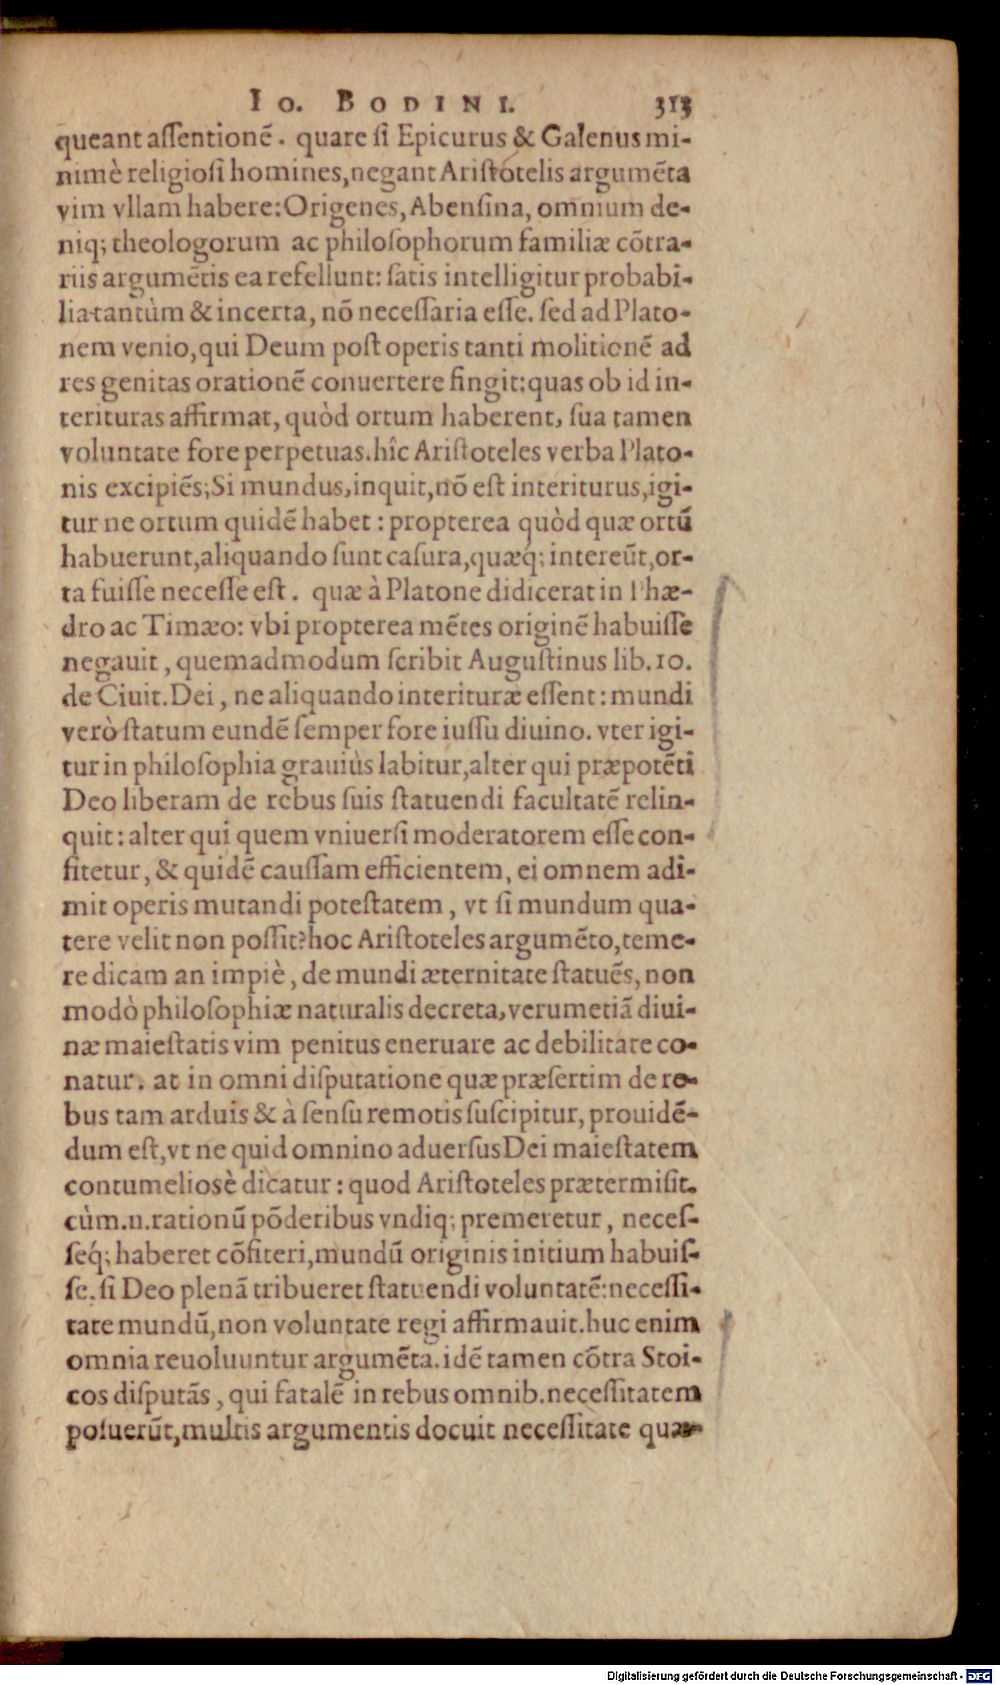 IO. BODINI. 313
queant aſſentionē. quare ſi Epicurus & Galenus mi-
nimè religioſi homines, negant Ariſtotelis argumēta
vim vllam habere: Origenes, Abenſina, omnium de-
niq; theologorum ac philoſophorum familiæ cōtra-
riis argumētis ea refellunt: ſatis intelligitur probabi-
lia tantùm & incerta, nō neceſſaria eſſe. ſed ad Plato-
nem venio, qui Deum poſt operis tanti molitionē ad
res genitas orationē conuertere fingit: quas ob id in-
terituras affirmat, quòd ortum haberent, ſua tamen
voluntate fore perpetuas. hîc Ariſtoteles verba Plato-
nis excipiēs; Si mundus, inquit, nō eſt interiturus, igi-
tur ne ortum quidē habet: propterea quòd quæ ortū
habuerunt, aliquando ſunt caſura, quæq́; intereūt, or-
ta fuiſſe neceſſe eſt. quæ à Platone didicerat in Phæ-
dro ac Timæo: vbi propterea mētes originē habuiſſe
negauit, quemadmodum ſcribit Auguſtinus lib. 10.
de Ciuit. Dei, ne aliquando interituræ eſſent: mundi
verò ſtatum eundē ſemper fore iuſſu diuino. vter igi-
tur in philoſophia grauiùs labitur, alter qui præpotēti
Deo liberam de rebus ſuis ſtatuendi facultatē relin-
quit: alter qui quem vniuerſi moderatorem eſſe con-
fitetur, & quidē cauſſam efficientem, ei omnem adi-
mit operis mutandi poteſtatem, vt ſi mundum qua-
tere velit non poſſit? hoc Ariſtoteles argumēto, teme-
re dicam an impiè, de mundi æternitate ſtatuēs, non
modò philoſophiæ naturalis decreta, verumetiā diui-
næ maieſtatis vim penitus eneruare ac debilitare co-
natur. at in omni diſputatione quæ præſertim de re-
bus tam arduis & à ſenſu remotis ſuſcipitur, prouidē-
dum eſt, vt ne quid omnino aduerſus Dei maieſtatem
contumelioſè dicatur: quod Ariſtoteles prætermiſit.
cùm .n. rationū pōderibus vndiq; premeretur, neceſ-
ſeq́; haberet cōfiteri, mundū originis initium habuiſ-
ſe. ſi Deo plenā tribueret ſtatuendi voluntatē: neceſſi-
tate mundū, non voluntate regi affirmauit. huc enim
omnia reuoluuntur argumēta. idē tamen cōtra Stoi-
cos diſputās, qui fatalē in rebus omnib. neceſſitatem
poſuerūt, multis argumentis docuit neceſſitate quæ-
Digitalisierung gefördert durch die Deutsche Forschungsgemeinschaft - DFG